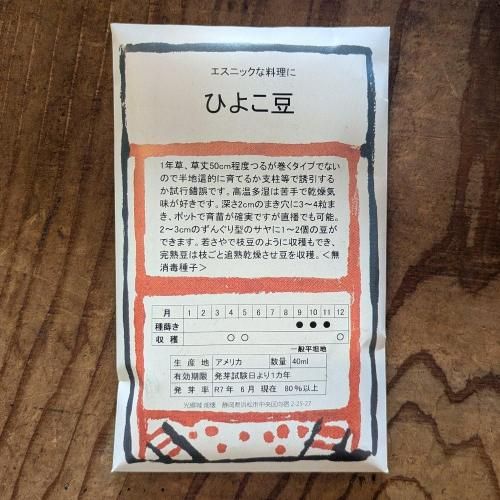 エスニックな料理に
ひよこ豆
1年草、草丈50cm程度つるが巻くタイプでない
ので半地這的に育てるか支柱等で誘引する
か試行錯誤です。高温多湿は苦手で乾燥気
味が好きです。深さ2cmのまき穴に3〜4粒ま
き、ポットで育苗が確実ですが直播でも可能。
2〜3cmのずんぐり型のサヤに1〜2個の豆が
できます。若さやで枝豆のように収穫もでき、
完熟豆は枝ごと追熟乾燥させ豆を収穫。<無
消毒種子>
月 1 2 3 4 5 6 7 8 9 10 11 12
種蒔き ● ● ●
収穫 ○ ○ ○
一般平坦地
生産地 アメリカ 数量 40ml
有効期限 発芽試験日より1カ年
発芽率 R7年 6月 現在 80%以上
静岡県浜松市中央区 2-25-27